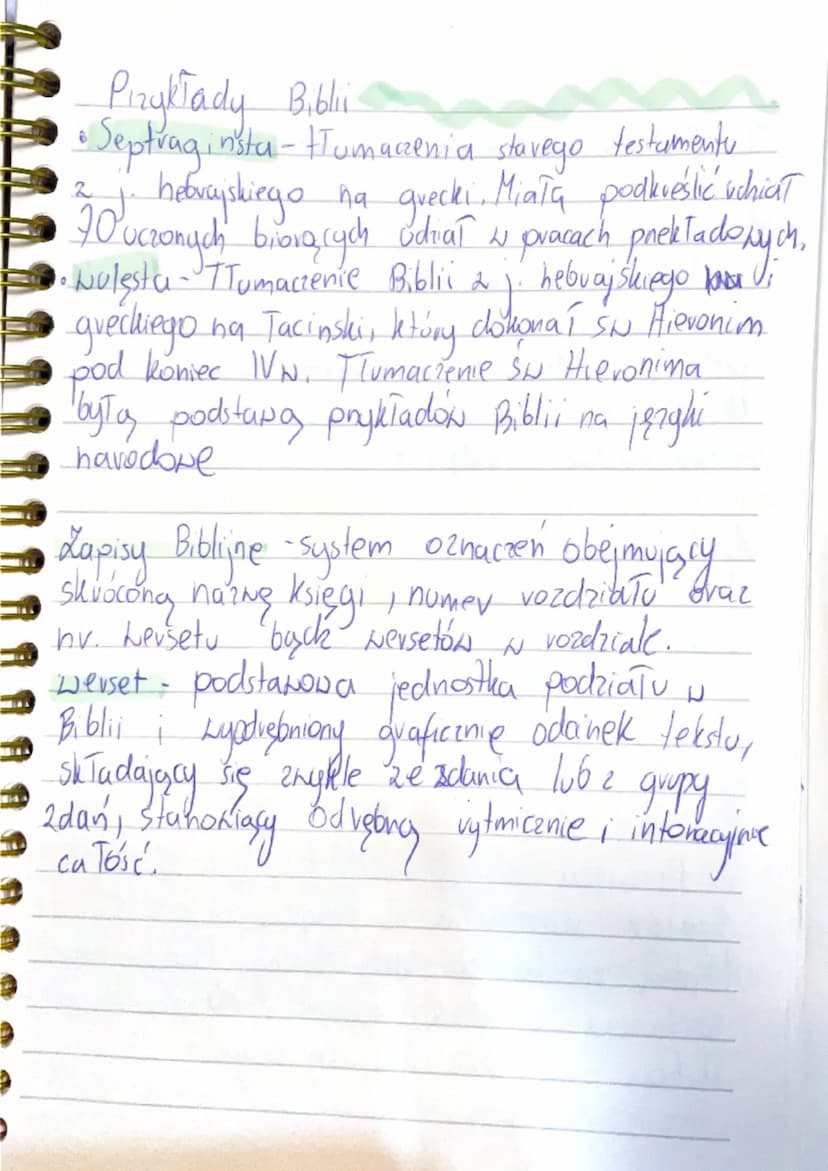 Przykłady Biblii
• Septraginsta - tłumaczenia starego testamentu
z j. hebrajskiego na grecki. Miała podkreślić udział
70 uczonych biorących udział w pracach przekładowych.
• Wulęsta - Tłumaczenie Biblii z j. hebrajskiego i
greckiego na łaciński, który dokonał św Hieronim
pod koniec IV w. Tłumaczenie św Hieronima
była podstawą przykładów Biblii na języki
narodowe
Zapisy Biblijne - system oznaczeń obejmujący
skróconą nazwę księgi, numer rozdziału oraz
nr. wersetu bądź wersetów w rozdziale.
werset - podstawowa jednostka podziału w
Biblii i wyodrębniony graficznie odcinek tekstu,
składający się zwykle ze zdania lub z grupy
zdań, stanowiący odrębną rytmicznie i intonacyjnie
całość.